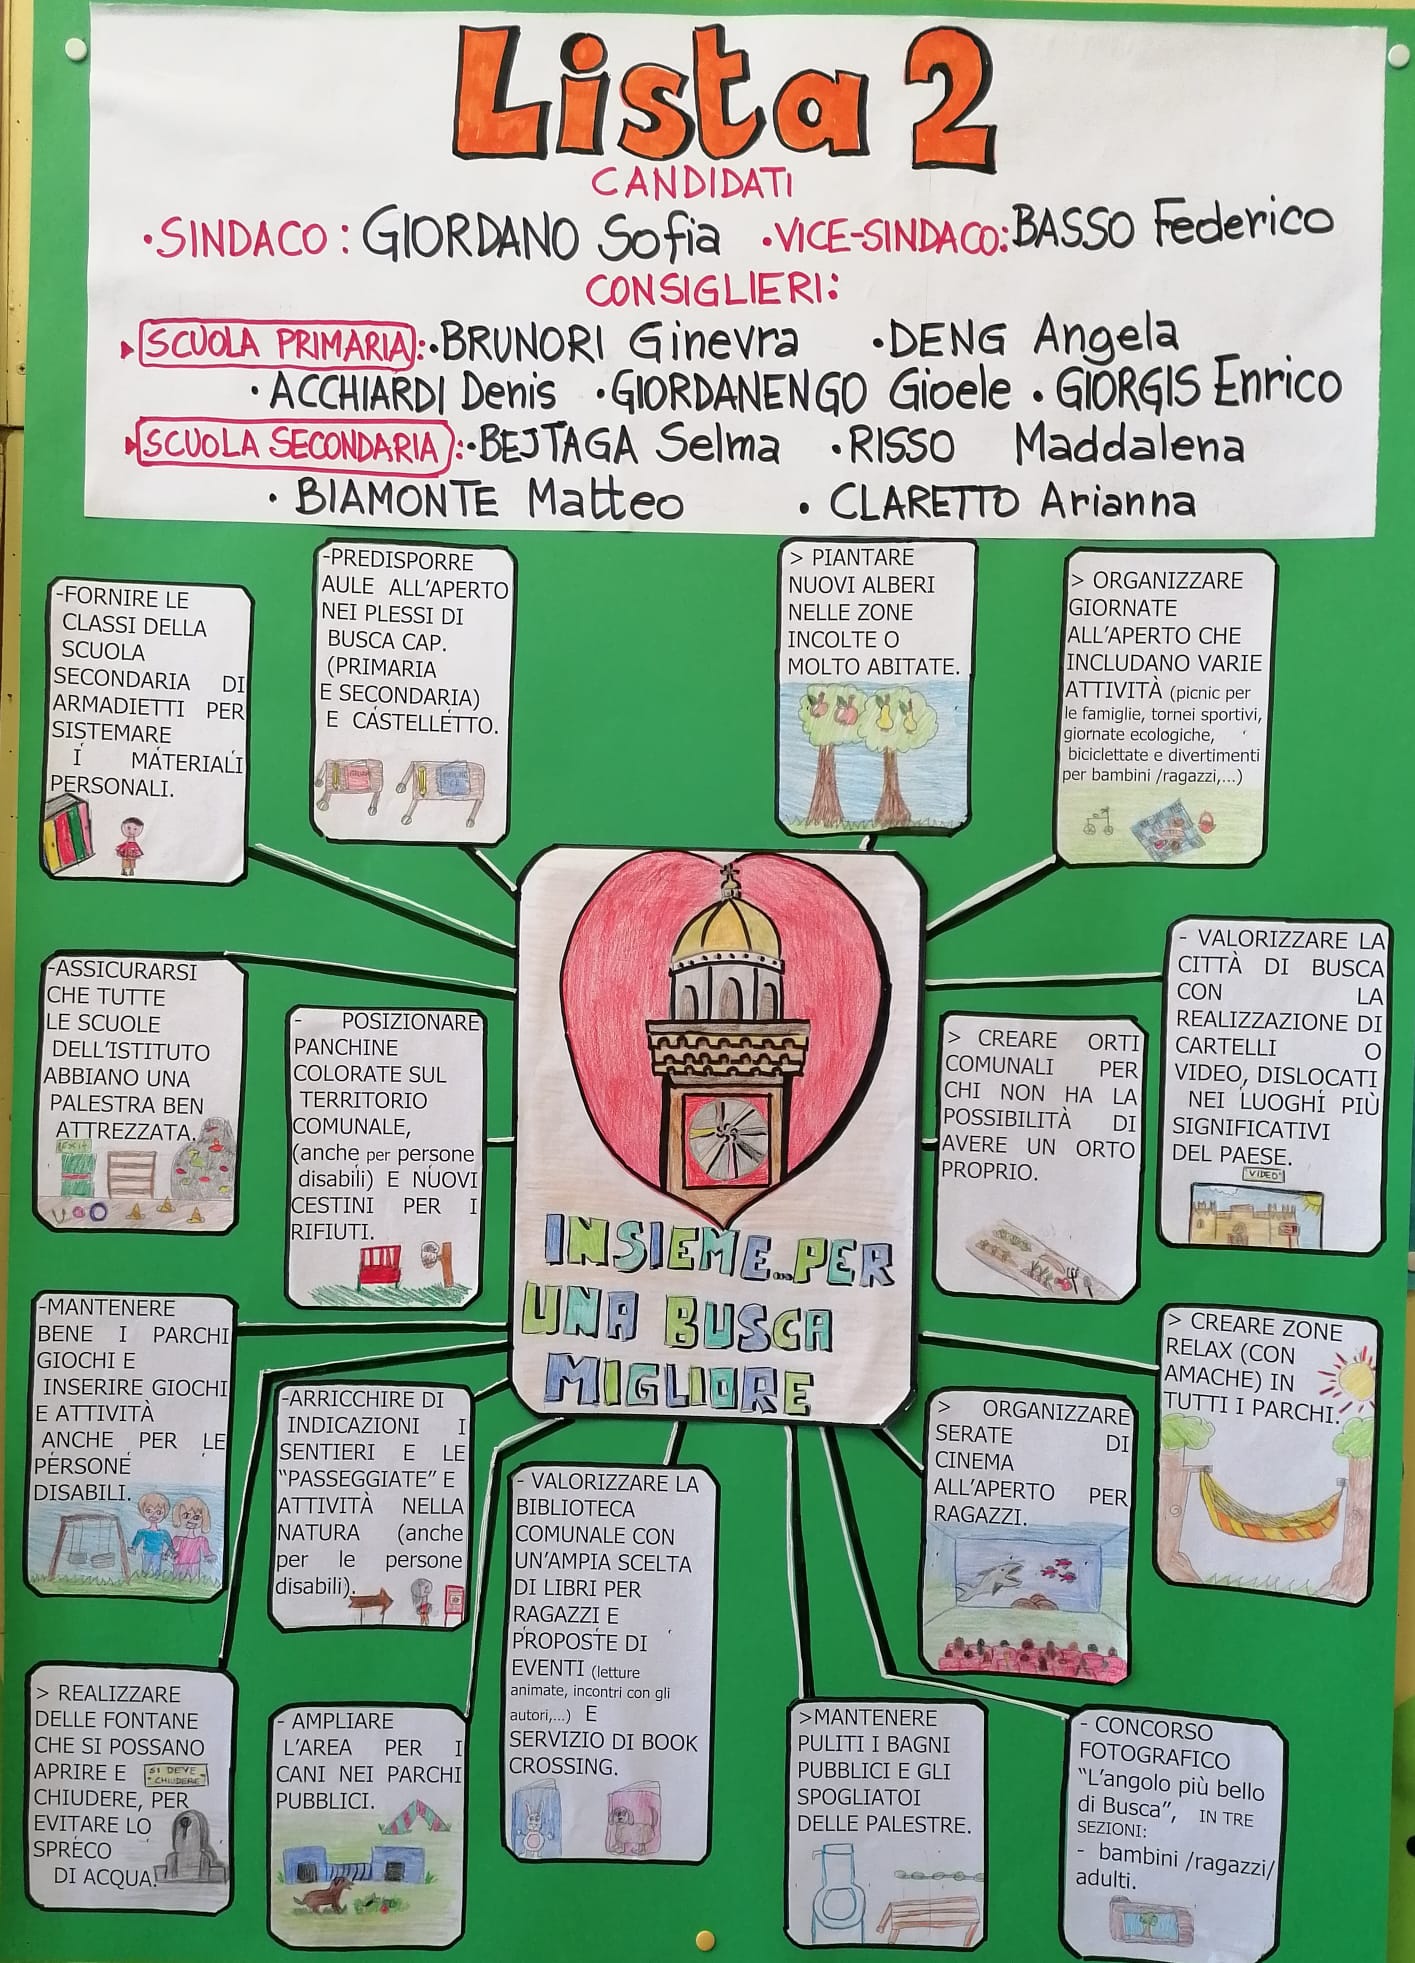 Lista 2
CANDIDATI
• SINDACO: GIORDANO Sofia • VICE-SINDACO: BASSO Federico
CONSIGLIERI:
SCUOLA PRIMARIA: • BRUNORI Ginevra • DENG Angela
• ACCHIARDI Denis • GIORDANENGO Gioele • GIORGIS Enrico
SCUOLA SECONDARIA: • BEJTAGA Selma • RISSO Maddalena
• BIAMONTE Matteo • CLARETTO Arianna
-FORNIRE LE
CLASSI DELLA
SCUOLA
SECONDARIA DI
ARMADIETTI PER
SISTEMARE
I MATERIALI
PERSONALI.
-PREDISPORRE
AULE ALL'APERTO
NEI PLESSI DI
BUSCA CAP.
(PRIMARIA
E SECONDARIA)
E CASTELLETTO.
> PIANTARE
NUOVI ALBERI
NELLE ZONE
INCOLTE O
MOLTO ABITATE.
> ORGANIZZARE
GIORNATE
ALL'APERTO CHE
INCLUDANO VARIE
ATTIVITÀ (picnic per
le famiglie, tornei sportivi,
giornate ecologiche,
biciclettate e divertimenti
per bambini /ragazzi,...)
-ASSICURARSI
CHE TUTTE
LE SCUOLE
DELL'ISTITUTO
ABBIANO UNA
PALESTRA BEN
ATTREZZATA.
EXIT
- POSIZIONARE
PANCHINE
COLORATE SUL
TERRITORIO
COMUNALE,
(anche per persone
disabili) E NUOVI
CESTINI PER I
RIFIUTI.
INSIEME...PER
UNA BUSCA
MIGLIORE
> CREARE ORTI
COMUNALI PER
CHI NON HA LA
POSSIBILITÀ DI
AVERE UN ORTO
PROPRIO.
- VALORIZZARE LA
CITTÀ DI BUSCA
CON LA
REALIZZAZIONE DI
CARTELLI O
VIDEO, DISLOCATI
NEI LUOGHI PIÙ
SIGNIFICATIVI
DEL PAESE.
"VIDEO"
-MANTENERE
BENE I PARCHI
GIOCHI E
INSERIRE GIOCHI
E ATTIVITÀ
ANCHE PER LE
PERSONE
DISABILI.
-ARRICCHIRE DI
INDICAZIONI I
SENTIERI E LE
"PASSEGGIATE" E
ATTIVITÀ NELLA
NATURA (anche
per le persone
disabili).
- VALORIZZARE LA
BIBLIOTECA
COMUNALE CON
UN'AMPIA SCELTA
DI LIBRI PER
RAGAZZI E
PROPOSTE DI
EVENTI (letture
animate, incontri con gli
autori,...) E
SERVIZIO DI BOOK
CROSSING.
> ORGANIZZARE
SERATE DI
CINEMA
ALL'APERTO PER
RAGAZZI.
> CREARE ZONE
RELAX (CON
AMACHE) IN
TUTTI I PARCHI.
> REALIZZARE
DELLE FONTANE
CHE SI POSSANO
APRIRE E
CHIUDERE, PER
EVITARE LO
SPRECO
DI ACQUA.
SI DEVE
"CHIUDERE"
- AMPLIARE
L'AREA PER I
CANI NEI PARCHI
PUBBLICI.
>MANTENERE
PULITI I BAGNI
PUBBLICI E GLI
SPOGLIATOI
DELLE PALESTRE.
- CONCORSO
FOTOGRAFICO
"L'angolo più bello
di Busca", IN TRE
SEZIONI:
- bambini /ragazzi/
adulti.